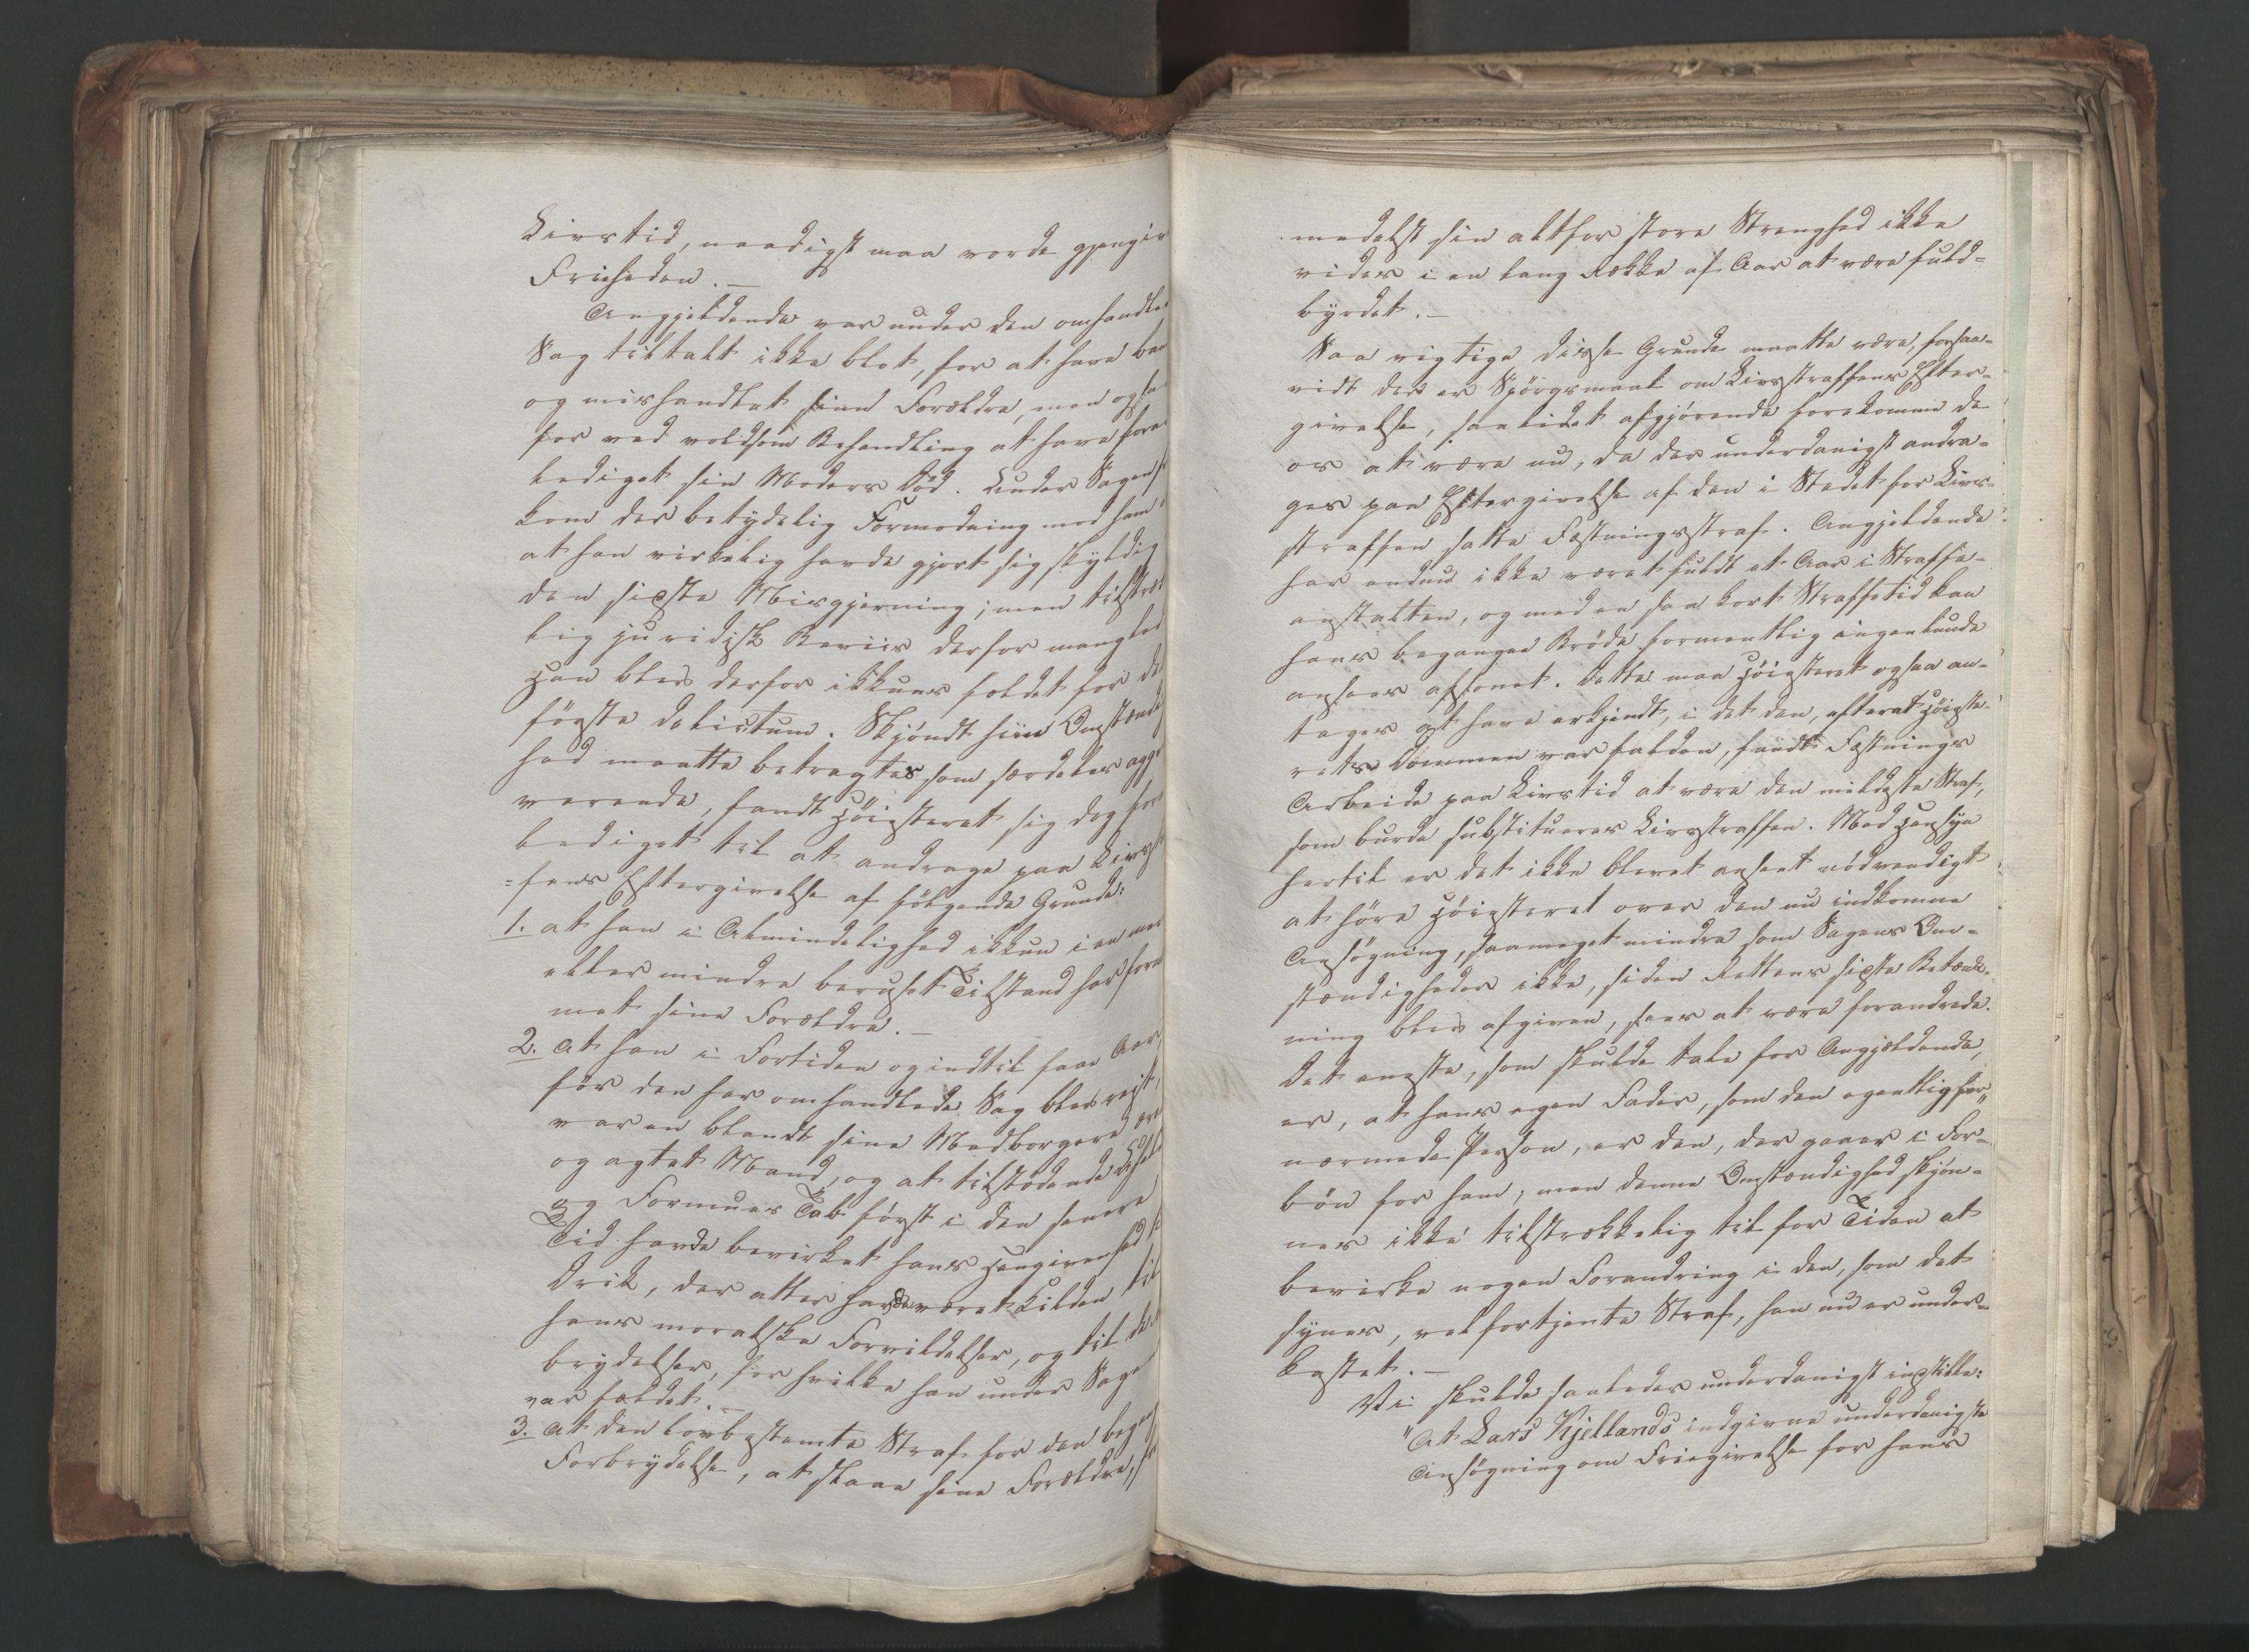 Livstid, naadigst maa vorde gjengiv
Friheden. —
Angjeldende var under den omhandle
Sag tiltalt ikke blot, for at have ban
og mishandlet sine Forældre, men ogsa
for ved voldsom Behandling at have foran
lediget sin Moders Död. Under Sagen
kom der betydelig Formodning mod ham
at han virkelig havde gjort sig skyldig
den sidste Misgjerning; men tilstræk
lig juridisk Beviis derfor mangled
Han blev derfor ikkuns fældet for de
förste delictum. Skjöndt hiin Omstændig
hed maatte betragtes som særdeles aggra
verende, fandt Höiesteret sig dog for
lediget til at andrage paa Livsst
=fens Eftergivelse af fölgende Grunde:
1. at han i Almindelighed ikkun i en mer
eller mindre beruset Tilstand har forn
met sine Forældre. —
2. at han i Fortiden og indtil faae Aar,
för den her omhandlede Sag blev reist,
var en blandt sine Medborgere ære
og agtet Mand, og at tilstödende Uheld
og Formues Tab först i den senere
Tid havde bevirket hans Hengivenhed
Drik, der atter havde været Kilden til
hans moralske Forvildelser, og til de
brydelser, for hvilke han under Sagen
var fældet. —
3. at den lovbestemte Straf for den begang
Forbrydelse, at slaae sine Forældre,
medelst sin altfor store Strenghed ikke
vides i en lang Række af Aar at være fuld-
byrdet. —
Saa vigtige disse Grunde maatte være, forsaa-
vidt der er Spörgsmaal om Livsstraffens Efter-
givelse, saa lidet afgjörende forekomme de
os at være nu, da der underdanigst andra-
ges paa Eftergivelse af den i Stedet for Livs-
straffen satte Fæstningsstraf. Angjeldende
har endnu ikke været fuldt et Aar i Straffe-
anstalten, og med en saa kort Straffetid kan
hans begangne Bröde formentlig ingenlunde
ansees afsonet. Dette maa Höiesteret ogsaa an-
tages at have erkjendt, i det den, efterat Höieste-
rets Dommen var falden, fandt Fæstnings
Arbeide paa Livstid at være den mildeste Straf,
som burde substitueres Livsstraffen. Med Hensyn
hertil er det ikke blevet anseet nödvendigt
at höre Höiesteret over den nu indkomne
Ansögning, saameget mindre som Sagens Om-
stændigheder ikke, siden Rettens sidste Betænk-
ning blev afgiven, sees at være forandrede.
Det eneste, som skulde tale for Angjeldende,
er, at hans egen Fader, som den egentlig for-
nærmede Person, er den, der gaaer i For-
bön for ham; men denne Omstændighed skjön-
nes ikke tilstrækkelig til for Tiden at
bevirke nogen Forandring i den, som det
synes, vel fortjente Straf, han nu er under-
kastet. —
Vi skulde saaledes underdanigst indstille:
"At Lars Kjellands indgivne underdanigste
Ansögning om Friegivelse for hans